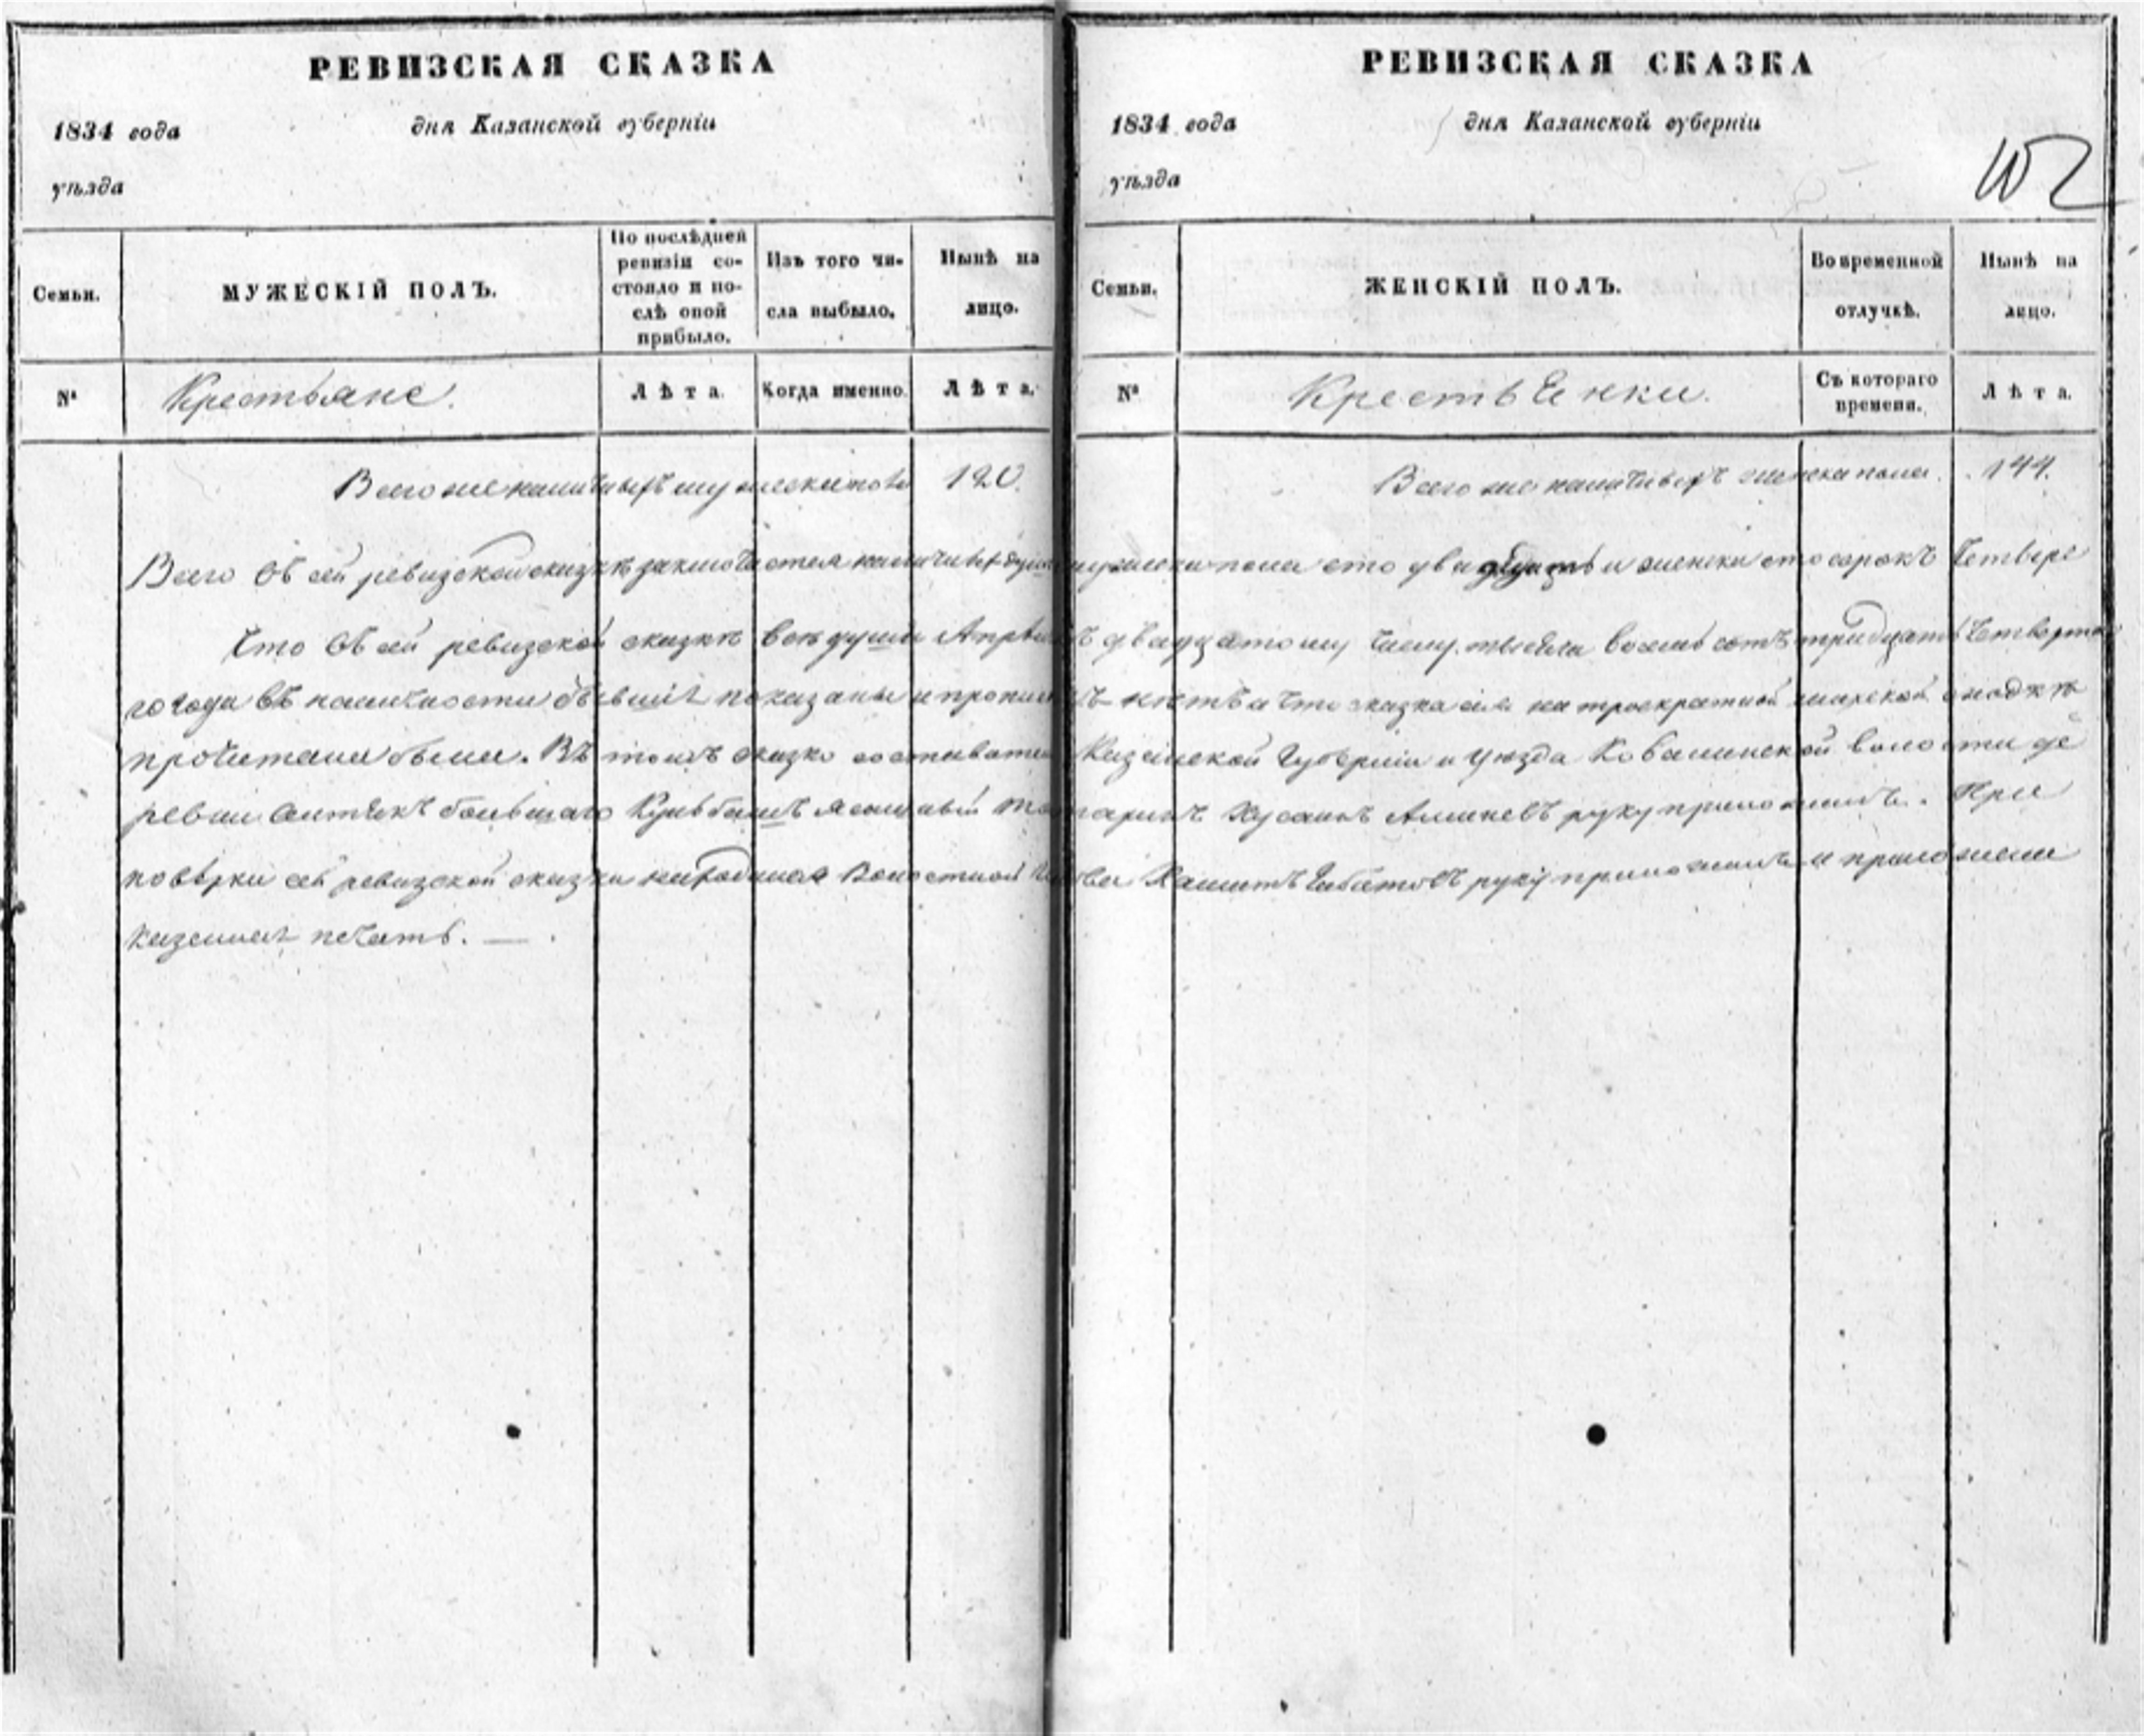 РЕВИЗСКАЯ СКАЗКА
1834 года
дня Казанской губернiи
уѣзда
Семьи.
МУЖЕСКIЙ ПОЛЪ.
По послѣдней ревизiи со-
стояло и по-
слѣ оной
прибыло.
Изъ того чи-
сла выбыло.
Нынѣ на
лицо.
№
Крестьяне.
Лѣта.
Когда именно.
Лѣта.
Всего же наличныхъ мужеска пола 120.
РЕВИЗСКАЯ СКАЗКА
1834 года
дня Казанской губернiи
уѣзда
102
Семьи.
ЖЕНСКIЙ ПОЛЪ.
Во временной
отлучкѣ.
Нынѣ на
лицо.
№
Крестьянки.
Съ котораго
времени.
Лѣта.
Всего же наличныхъ женска пола. 144.
Всего въ сей ревизской сказкѣ заключается наличныхъ душъ мужеска пола сто двадцать и женска сто сорокъ четыре
Что въ сей ревизской сказкѣ всѣ души Апрѣля двадцатому числу тысяча восемь сотъ тридцать четверта
го года въ наличности бывшiя показаны и нѣтъ и что сказка сiя на троекратной мирской сходкѣ
прочитана была. Въ томъ сказко составатель Казанской Губернiи и Уѣзда Кобалинской волости де
ревни большаго ясашный Татаринъ Хусаинъ руку приложилъ. При
повѣрки сей ревизской сказки находился Волостной Голова руку приложилъ и приложена
казенная печать. —.